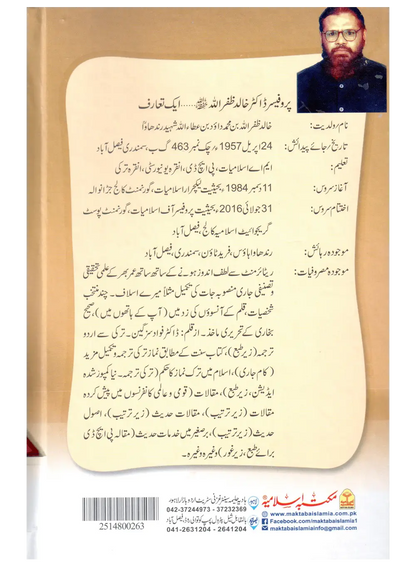 پروفیسر ڈاکٹر خالد ظفر اللہ ﷾...... ایک تعارف
نام رولدیت: خالد ظفر اللہ بن محمد داؤد بن عطاء اللہ شہید رندھاوا
تاریخ رجائے پیدائش: 24 اپریل 1957ء رچک نمبر 463 گ ب، سمندری فیصل آباد
تعلیم: ایم اے اسلامیات، پی ایچ ڈی، انقرہ یونیورسٹی، انقرہ ترکی
آغاز سروس: 11 دسمبر 1984ء بحیثیت لیکچرار اسلامیات، گورنمنٹ کالج جڑانوالہ
اختتام سروس: 31 جولائی 2016ء بحیثیت پروفیسر آف اسلامیات، گورنمنٹ پوسٹ
گریجوایٹ اسلامیہ کالج، فیصل آباد
موجودہ رہائش: رندھاوا ہاؤس، فرید ٹاؤن، سمندری، فیصل آباد
موجودہ مصروفیات: ریٹائرمنٹ سے لطف اندوز ہونے کے ساتھ ساتھ عمر بھر کے علمی تحقیقی
و تصنیفی جاری منصوبہ جات کی تکمیل مثلاً میرے اسلاف۔ چند منتخب
شخصیات، قلم کے آنسوؤں کی زد میں (آپ کے ہاتھوں میں)، صحیح
بخاری کے تحریری ماخذ۔ از قلم: ڈاکٹر فواد سزگین۔ ترکی سے اردو
ترجمہ (زیر طبع)، کتاب سنت کے مطابق نماز ترکی ترجمہ و تکمیل مزید
(کام جاری)، اسلام میں ترک نماز کا حکم (ترکی ترجمہ۔ نیا کمپوز شدہ
ایڈیشن، زیر طبع)، مقالات (قومی و عالمی کانفرنسوں میں پیش کردہ
مقالات (زیر ترتیب)، مقالات حدیث (زیر ترتیب)، اصول
حدیث (زیر ترتیب)، برصغیر میں خدمات حدیث (مقالہ پی ایچ ڈی
برائے طبع، زیر غور) وغیرہ وغیرہ۔
2514800263
042-37244973 - 37232369
041-2631204 - 2641204
مکتبہ اسلامیہ
www.maktabaislamia.com.pk
Facebook.com/maktabaislamia1
maktabaislamiainfo@gmail.com